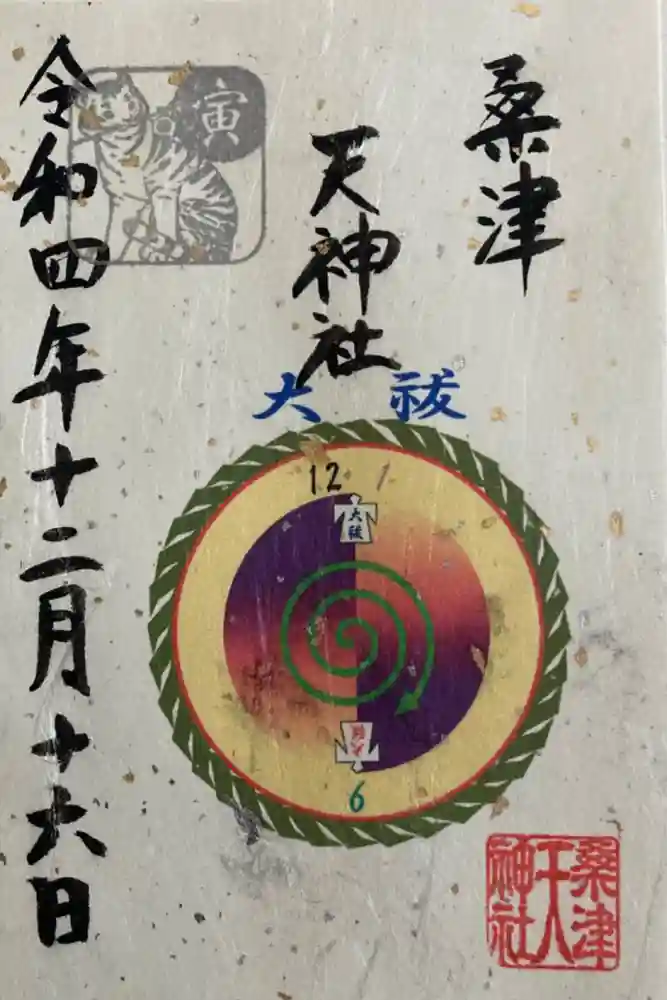 桑津
天神社
大祓
12 1
大祓
6
令和四年十二月十六日
寅
桑津
天
神社